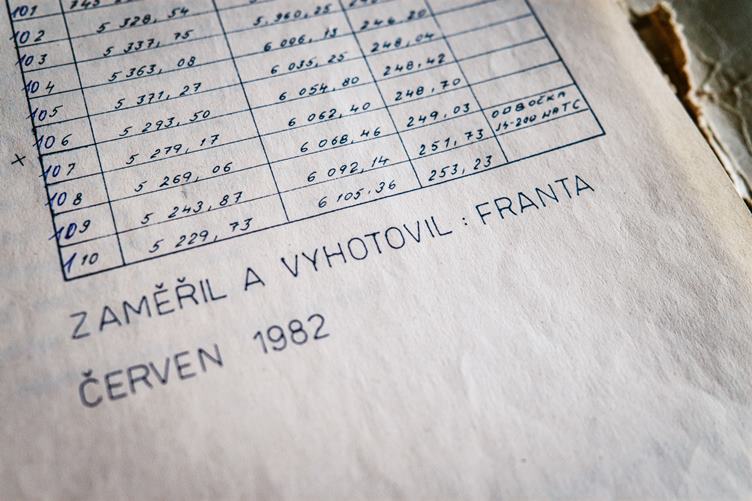 101
102 5 328, 54
103 5 337, 75 5,960, 25
104 5 363, 08 6 006, 13 246, 20
105 5 371, 27 6 035, 25 248, 04
106 5 293, 50 6 054, 80 248, 42
× 107 5 279, 17 6 062, 40 248, 70
108 5 269, 06 6 068, 46 249, 03
109 5 243, 87 6 092, 14 251, 73 ODBOČKA
110 5 229, 73 6 105. 36 253, 23
ZAMĚŘIL A VYHOTOVIL : FRANTA
ČERVEN 1982